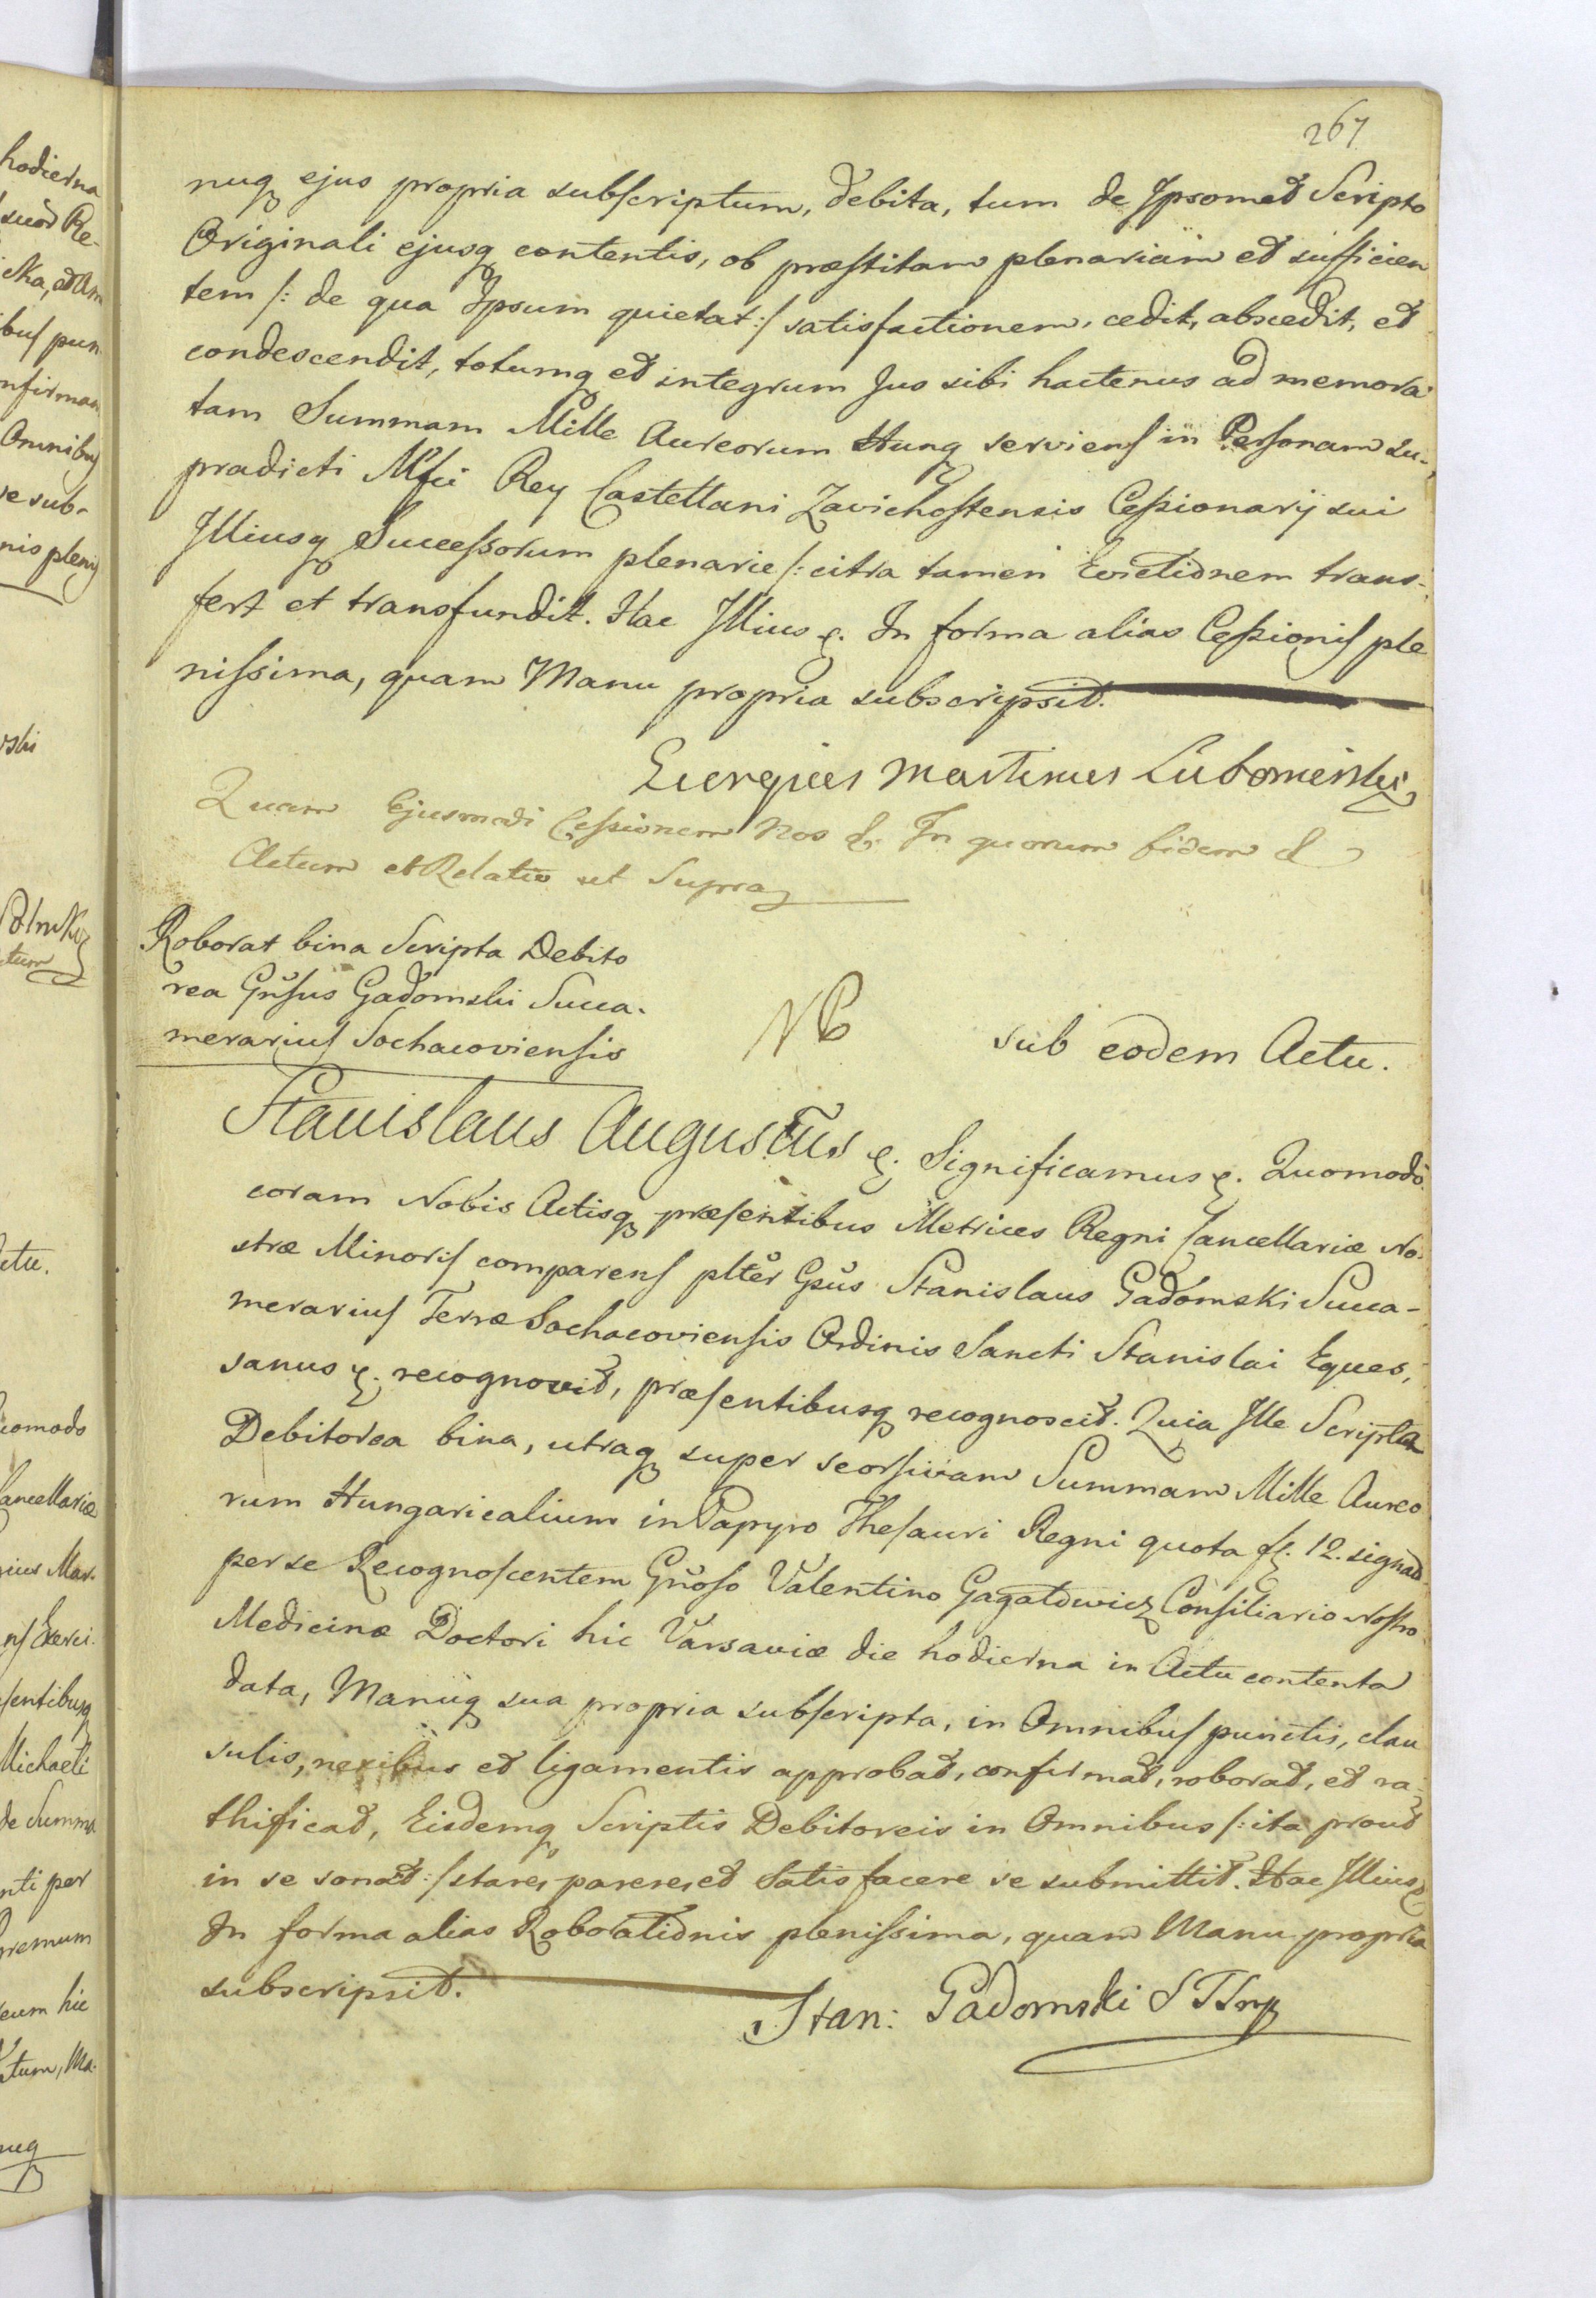 267
nuq ejus propria subscriptum, debita, tum de Ipsomet Scripto
Originali ejusq contentis, ob præstitam plenariam et sufficien
tem /: de qua Ipsum quietat :/ satisfactionem, cedit, abscedit, et
condescendit, totumq et integrum Jus sibi hactenus ad memora-
tam Summam Mille Aureorum Hung serviens in Personam su-
pradicti Mfci Rey Castellani Zavichostensis Cessionarij sui
Illiusq Successorum plenarie /: citra tamen Evictionem trans-
fert et transfundit. Hac Illius &. In forma alias Cessionis ple
nissima, quam Manu propria subscripsit.
Georgius Martinus Lubomirski
Quam Ejusmodi Cessionem Nos &. In quorum fidem &
Actum et Relatio ut Supra
Roborat bina Scripta Debito
rea Gnsus Gadomski Succa-
merarius Sochacoviensis
NB
sub eodem Actu.
Stanislaus Augustus &. Significamus &. Quomodo
coram Nobis Actisq præsentibus Metrices Regni Cancellariæ No-
stræ Minoris comparens plter Gsus Stanislaus Gadomski Succa-
merarius Terræ Sochacoviensis Ordinis Sancti Stanislai Eques,
sanus &. recognovit, præsentibusq recognoscit. Quia Ille Scripta
Debitorea bina, utraq super seorsivam Summam Mille Aureo
rum Hungaricalium in Papyro Thesauri Regni quota fl. 12. signat
per se Recognoscentem Gnoso Valentino Gagatkiewicz Consiliario Nostro
Medicinæ Doctori hic Varsaviæ die hodierna in Actu contenta
data, Manuq sua propria subscripta, in Omnibus punctis, clau
sulis, nexibus et ligamentis approbat, confirmat, roborat, et ra-
thificat, Eisdemq Scriptis Debitoreis in Omnibus /: ita prout
in se sonat :/ stare, parere, et Satisfacere se submittit. Hac Illius &
In forma alias Roborationis plenissima, quam Manu propria
subscripsit.
Stan: Gadomski